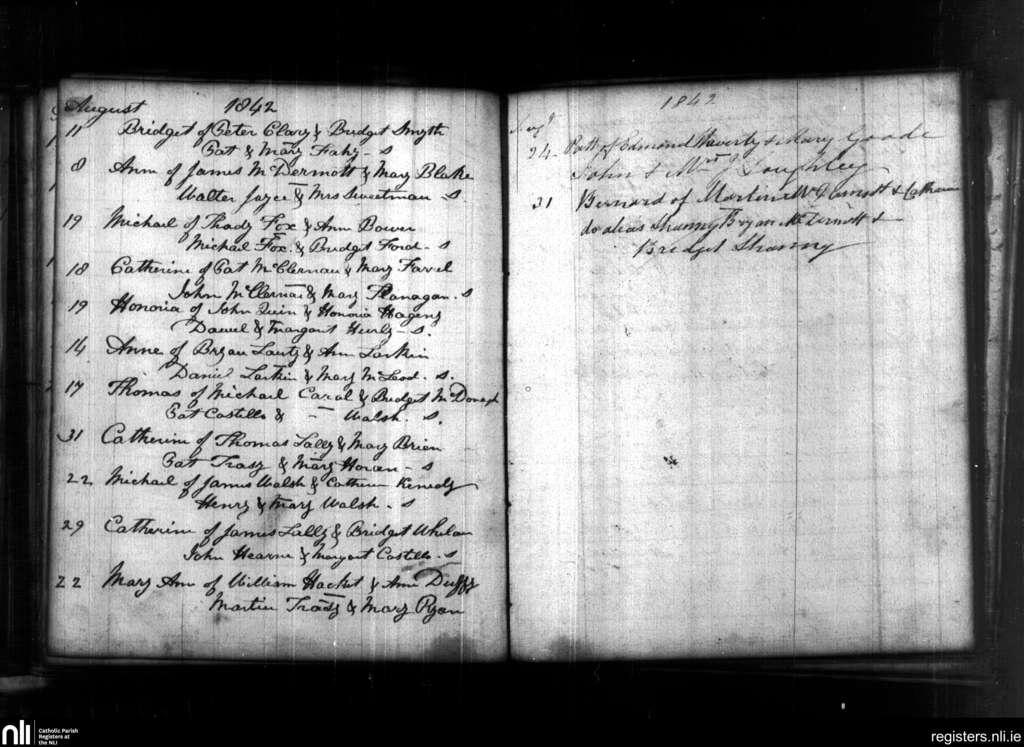 August 1842
11 Bridget of Peter Clary & Bridget Smyth
Pat & Mary Fahy - S
8 Ann of James McDermott & Mary Blake
Walter Joyce & Mrs Sweetman - S.
19 Michael of Thady Fox & Ann Bower
Michael Fox & Bridget Ford - S
18 Catherine of Pat McClernan & Mary Farrel
John McClernan & Mary Flanagan. S
19 Honoria of John Quin & Honoria
Daniel & Margaret - S.
14 Anne of Bryan & Ann Larkin
Daniel Larkin & Mary McLeod. S.
17 Thomas of Michael Caral & Bridget McDonagh
Pat Costello & - Walsh. S.
31 Catherine of Thomas Lally & Mary Brien
Pat & Mary Horan - S
22 Michael of James Walsh & Catherine Kenedy
Henry & Mary Walsh. S
29 Catherine of James Lally & Bridget Whelan
John Hearne & Margaret Costello. S
22 Mary Ann of William Hacket & Ann Duffy
Martin & Mary Ryan
1842
Augt
24 Patk of Edmond & Mary Goode
John &
31 Bernard of Martin McDermott & Catherine
do alias Shanny Bryan McDermott &
Bridget Shanny
nli Catholic Parish
Registers at
the NLI
registers.nli.ie